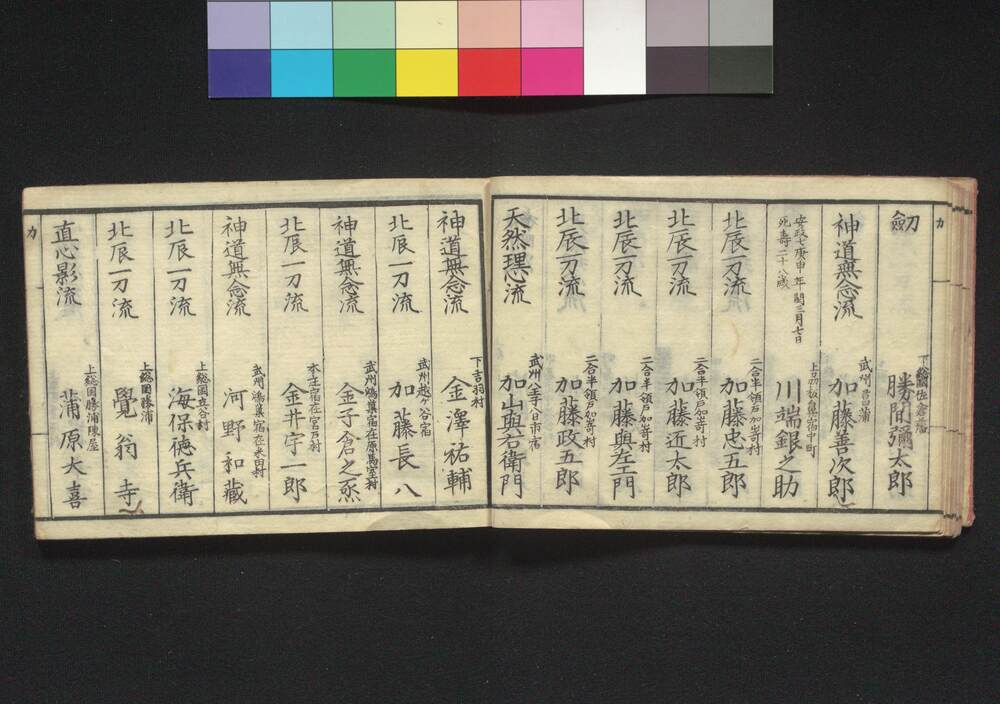 カ
劔
下総國佐倉
勝間彌太郎
神道無念流
武州菖蒲
加藤善次郎
安政七庚申年閏三月七日
死壽二十八歳
上刕板鼻宿中町
川端銀之助
北辰一刀流
二合半領戸加嵜村
加藤忠五郎
北辰一刀流
二合半領戸加嵜村
加藤近太郎
北辰一刀流
二合半領戸加嵜村
加藤與左エ門
北辰一刀流
二合半領戸加嵜村
加藤政五郎
天然理心流
武州八王子八日市宿
加山與右衛門
神道無念流
下吉羽村
金澤祐輔
北辰一刀流
武州越ヶ谷宿
加藤長八
神道無念流
武州鴻巣宿在原馬室村
金子倉之烝
北辰一刀流
本庄宿在宮戸村
金井宇一郎
神道無念流
武州鴻巣宿在糸田村
河野和藏
北辰一刀流
上総國立谷村
海保徳兵衛
北辰一刀流
上総國勝浦
覺翁寺
直心影流
上総國勝浦陳屋
蒲原大喜
カ